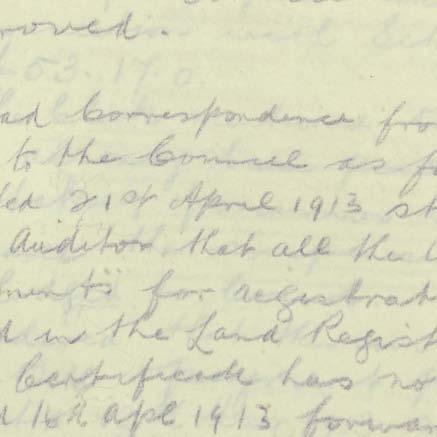 roved.
53.17.0
ad Correspondence fro
to the Council as f
ed 21st April 1913 st
Auditor that all the
ments" for registrat
d in the Land Regist
Certificate has no
d 16th Apl 1913 forwar